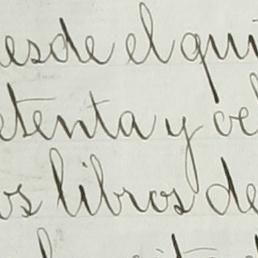 desde el qui
etenta y oc
os libros de